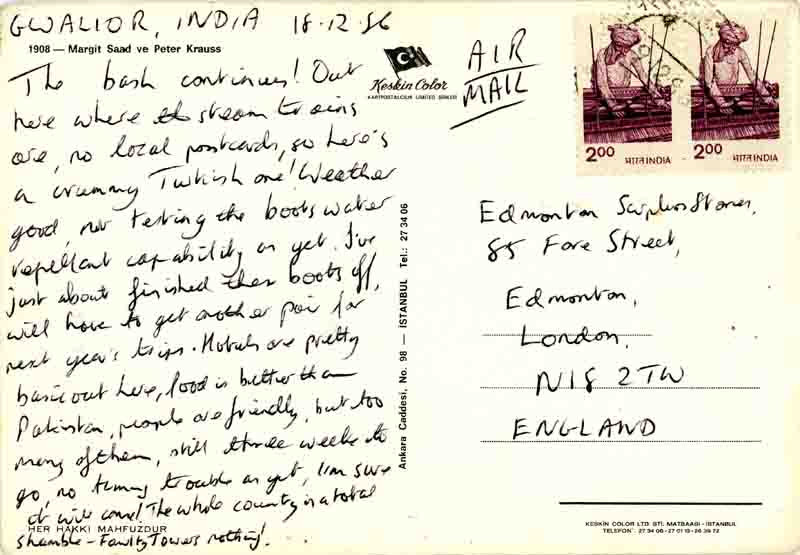 GWALIOR, INDIA 18.12.86
1908 — Margit Saad ve Peter Krauss
The bash continues! Out
here where the steam trains
are, no local postcards, so here's
a crummy Turkish one! Weather
good, not testing the boots water
repellant capability as yet. I've
just about finished these boots off,
will have to get another pair for
next year's trips. Hotels are pretty
basic out here, food is better than
Pakistan, people are friendly, but too
many of them, still three weeks to
go, no tummy trouble as yet, I'm sure
it will come! The whole country is a total
shambles - Fawlty Towers nothing!
HER HAKKI MAHFUZDUR
Keskin Color
KARTPOSTALCILIK LIMITED ŞİRKETİ
AIR
MAIL
Ankara Caddesi, No. 98 — İSTANBUL Tel.: 27 34 06
2.00 भारत INDIA
2.00 भारत INDIA
Edmonton Surplus Stores,
85 Fore Street,
Edmonton,
London,
N18 2TW
ENGLAND
KESKIN COLOR LTD ŞTİ. MATBAASI - İSTANBUL
TELEFON: 27 34 06 - 27 01 15 - 26 39 72